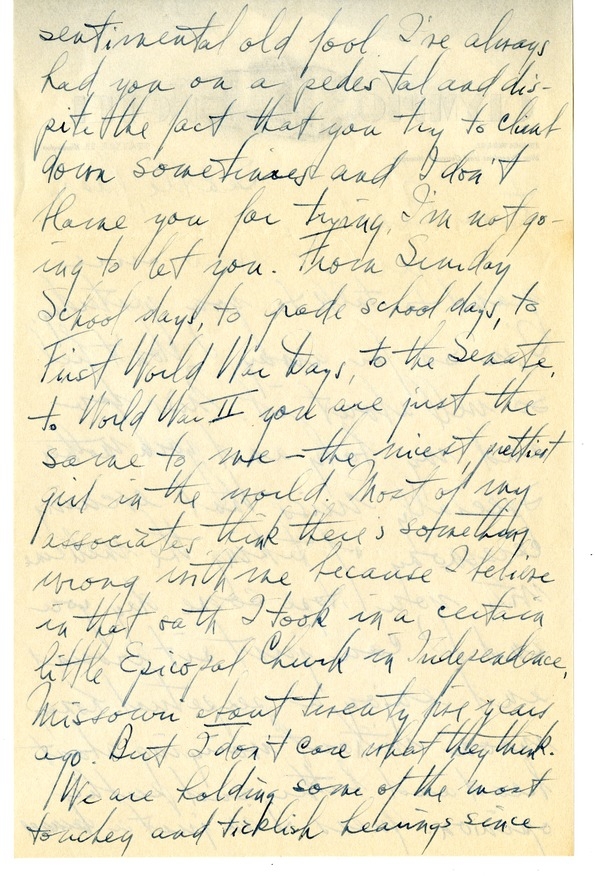 sentimental old fool. I've always
had you on a pedestal and dis-
pite the fact that you try to climb
down sometimes and I don't
blame you for trying, I'm not go-
ing to let you. From Sunday
School days, to grade school days, to
First World War Days, to the Senate,
to World War II you are just the
same to me - the nicest, prettiest
girl in the world. Most of my
associates think there's something
wrong with me because I believe
in that oath I took in a certain
little Episcopal Church in Independence,
Missouri about twenty five years
ago. But I don't care what they think.
We are holding some of the most
touchey and ticklish hearings since